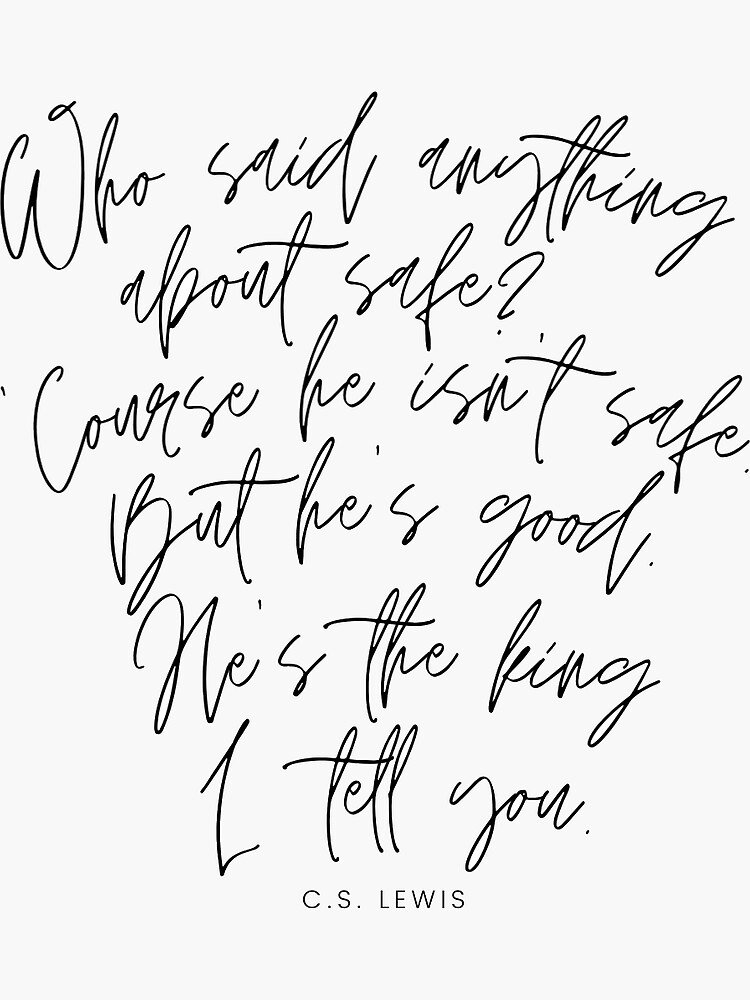 Who said anything
about safe?
'Course he isn't safe.
But he's good.
He's the king
I tell you.
C.S. LEWIS